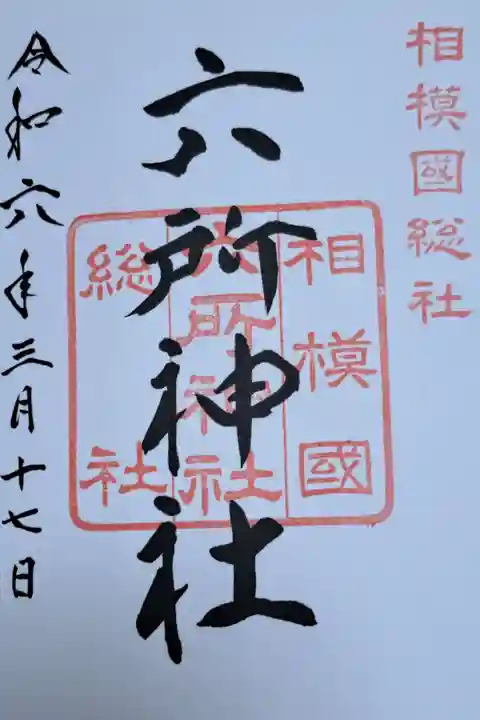 相模國総社
六所神社
相模國
六所神社
総社
令和六年三月十七日